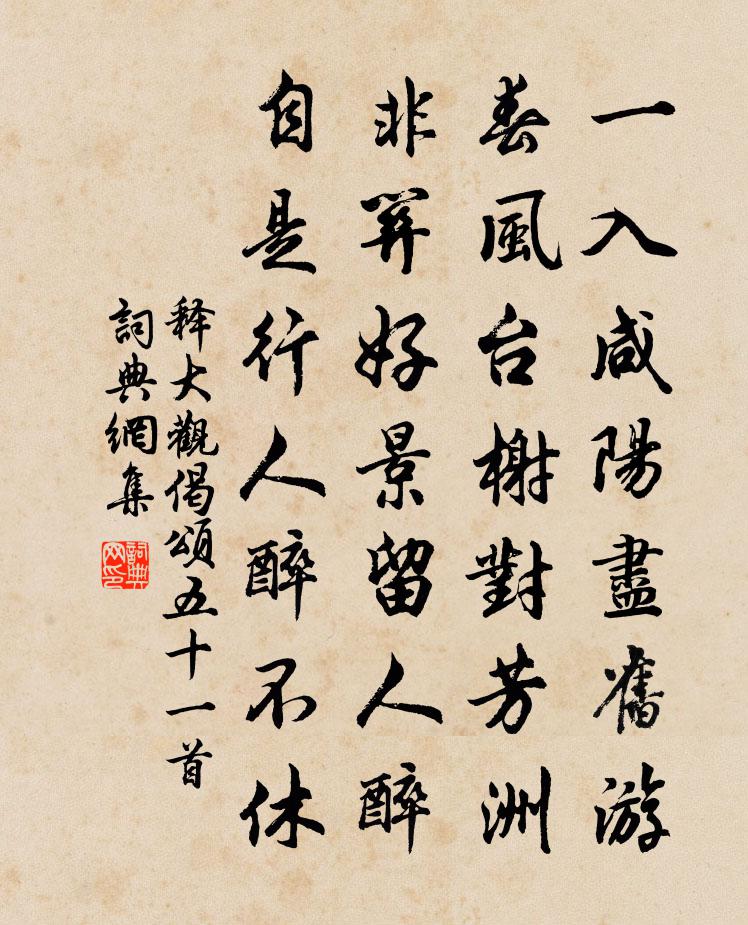 一入咸陽盡舊游
春風台榭對芳洲
非算好景留人醉
自是行人醉不休
释大觀偈頌五十一首
詞典網集
詞典网印